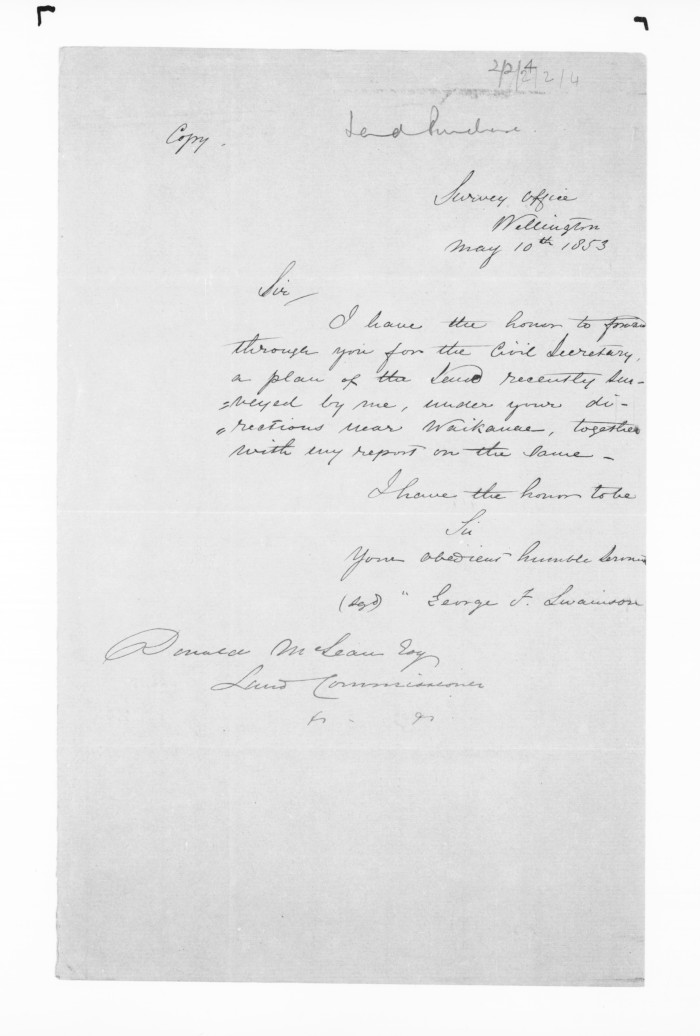 2/2/4
2/2/4
Land Purchase.
Copy.
Survey Office
Wellington
May 10th 1853
Sir
I have the honor to forward
through you for the Civil Secretary,
a plan of the Land recently sur-
=veyed by me, under your di-
=rections near Waikanae, together
with my report on the same -
I have the honor to be
Sir
Your obedient humble Servant
(sgd) " George F. Swainson
Donald McLean Esq
Land Commissioner